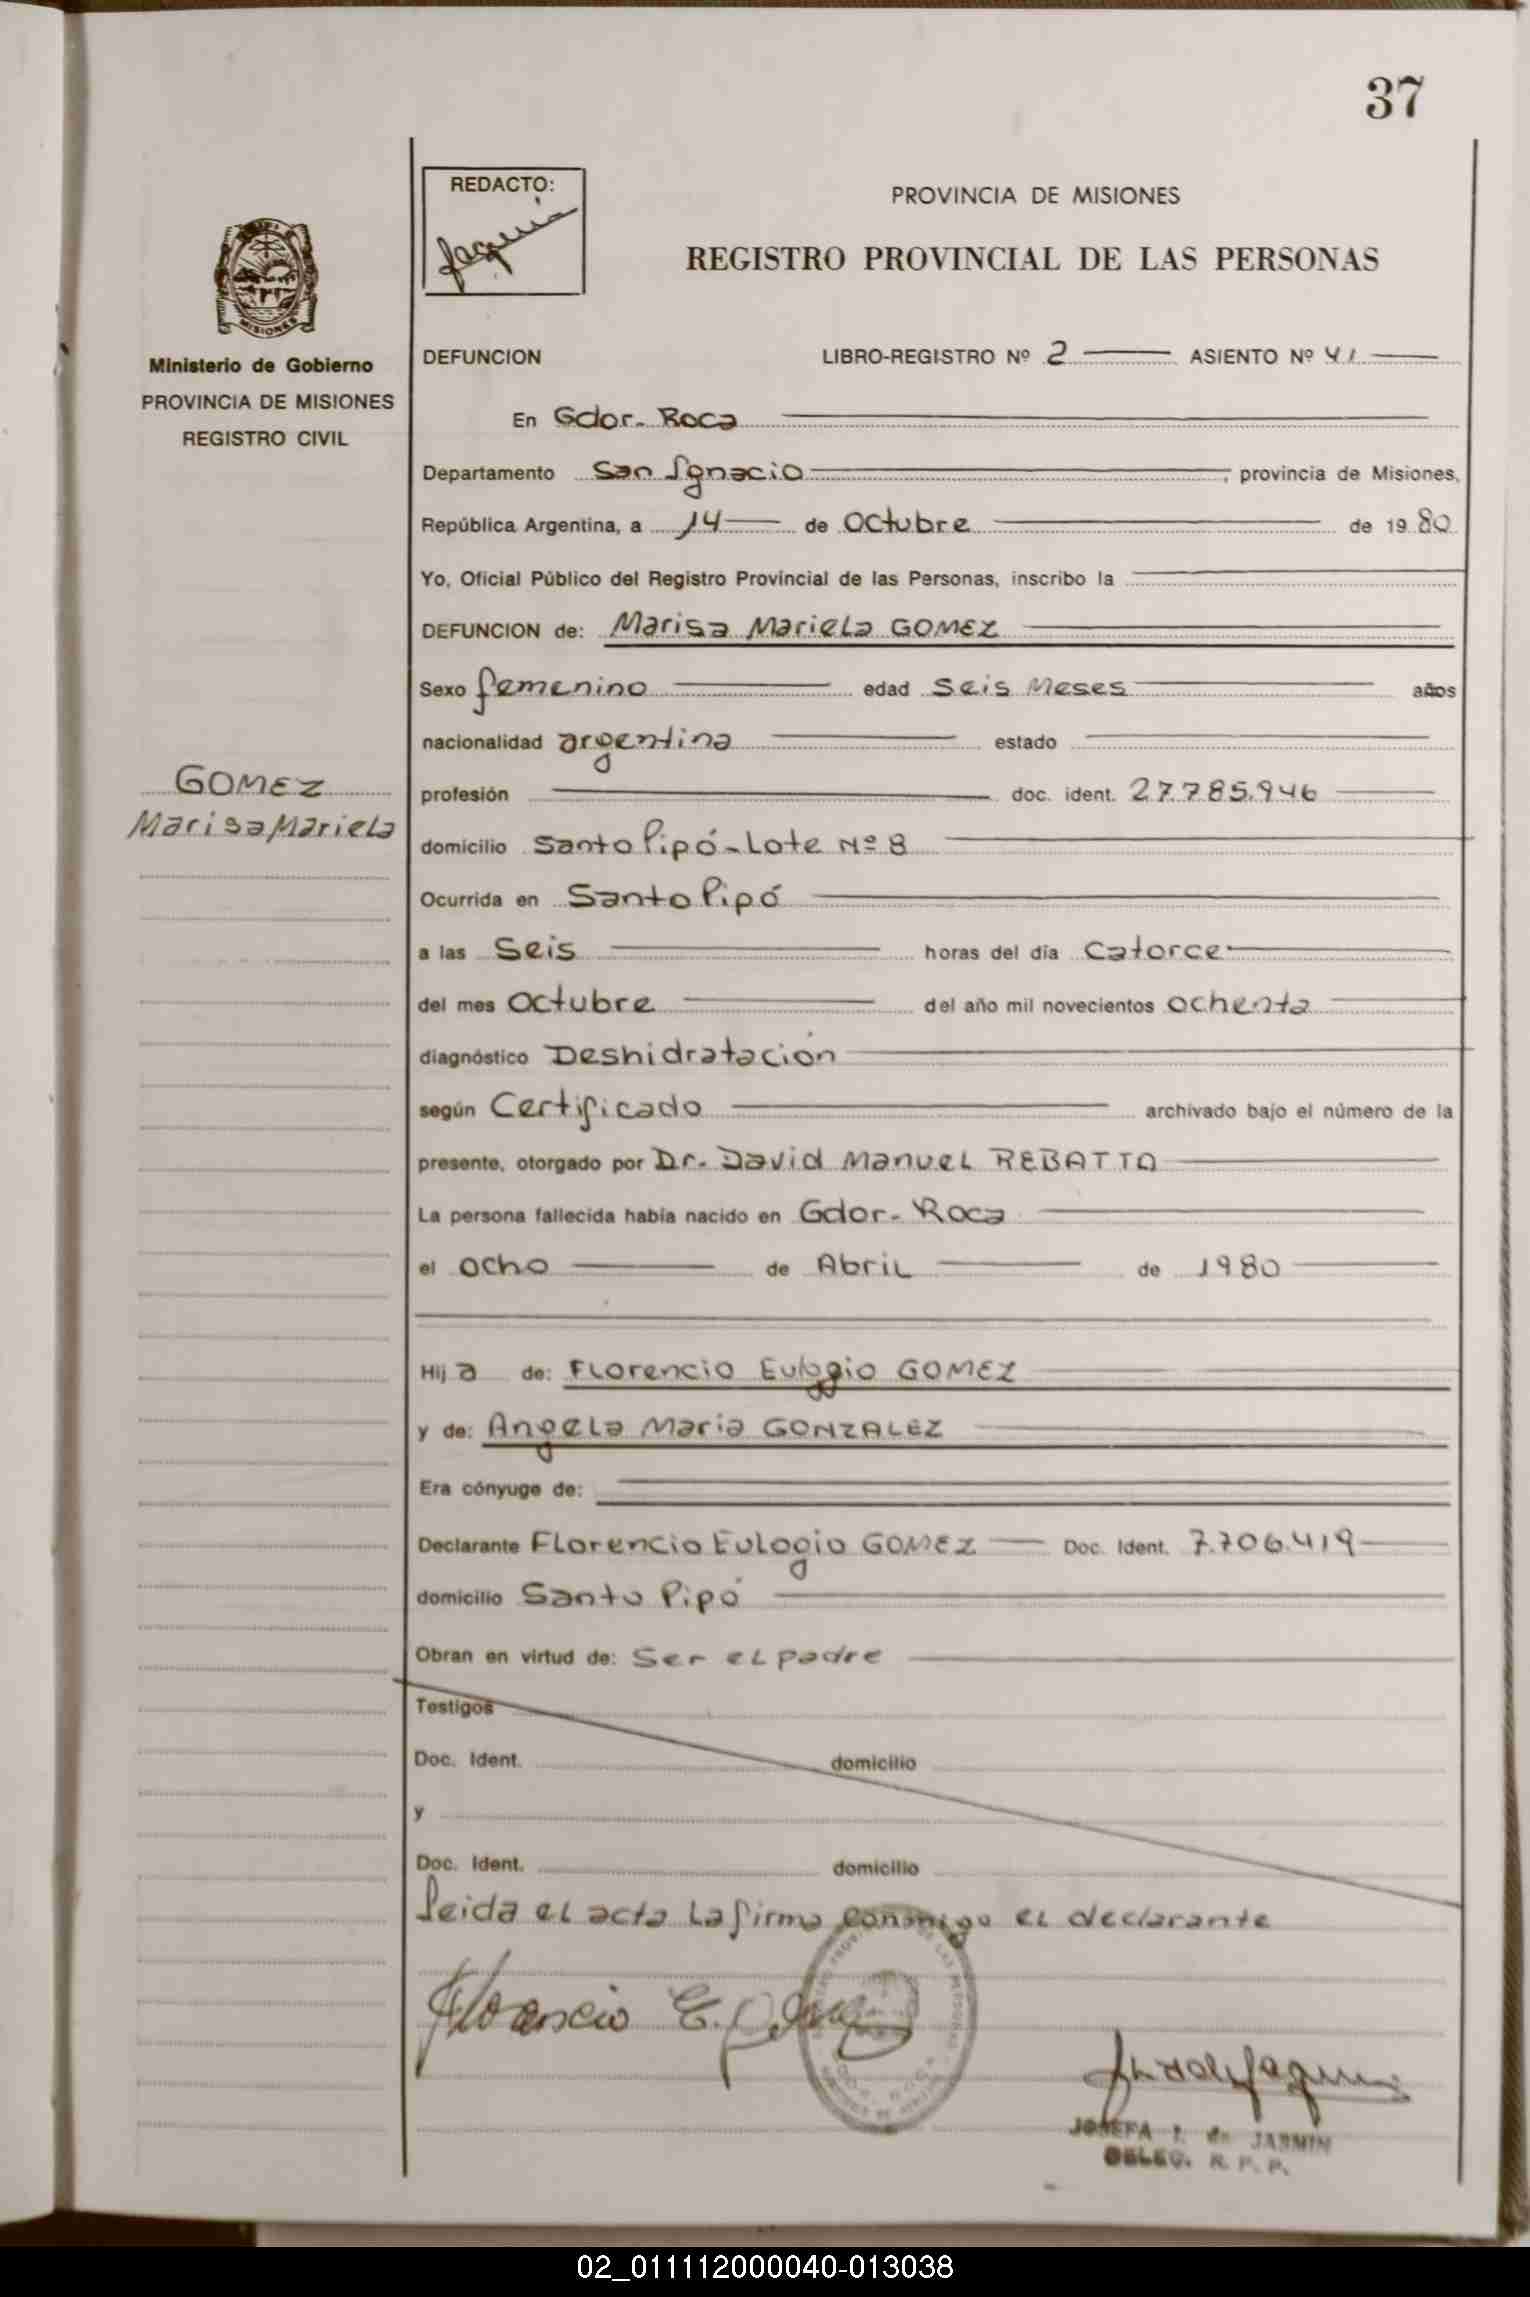 37
REDACTO:
PROVINCIA DE MISIONES
REGISTRO PROVINCIAL DE LAS PERSONAS
MISIONES
Ministerio de Gobierno
PROVINCIA DE MISIONES
REGISTRO CIVIL
DEFUNCION LIBRO-REGISTRO Nº 2 ASIENTO Nº 41
En Gdor. Roca
Departamento San Ignacio, provincia de Misiones,
República Argentina, a 14 de Octubre de 1980
Yo, Oficial Público del Registro Provincial de las Personas, inscribo la
DEFUNCION de: Marisa Mariela GOMEZ
Sexo femenino edad Seis Meses años
nacionalidad argentina estado
GOMEZ
Marisa Mariela
profesión doc. ident. 27.785.946
domicilio Santo Pipó - Lote Nº 8
Ocurrida en Santo Pipó
a las Seis horas del día Catorce
del mes Octubre del año mil novecientos ochenta
diagnóstico Deshidratación
según Certificado archivado bajo el número de la
presente, otorgado por Dr. David Manuel REBATTO
La persona fallecida había nacido en Gdor. Roca
el ocho de Abril de 1980
Hija de: Florencio Eulogio GOMEZ
y de: Angela Maria GONZALEZ
Era cónyuge de:
Declarante Florencio Eulogio GOMEZ Doc. Ident. 7.706.419
domicilio Santo Pipó
Obran en virtud de: Ser el padre
Testigos
Doc. Ident. domicilio
y
Doc. Ident. domicilio
Leida el acta la firma conmigo el declarante
Florencio E. Gomez
JOSEFA I. de JASMIN
DELEG. R. P. P.
02_011112000040-013038